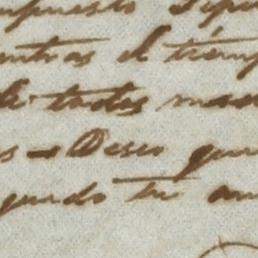 mpuesto
ntras el tiemp
de todos mas
s = Deseo que
quedo tu am